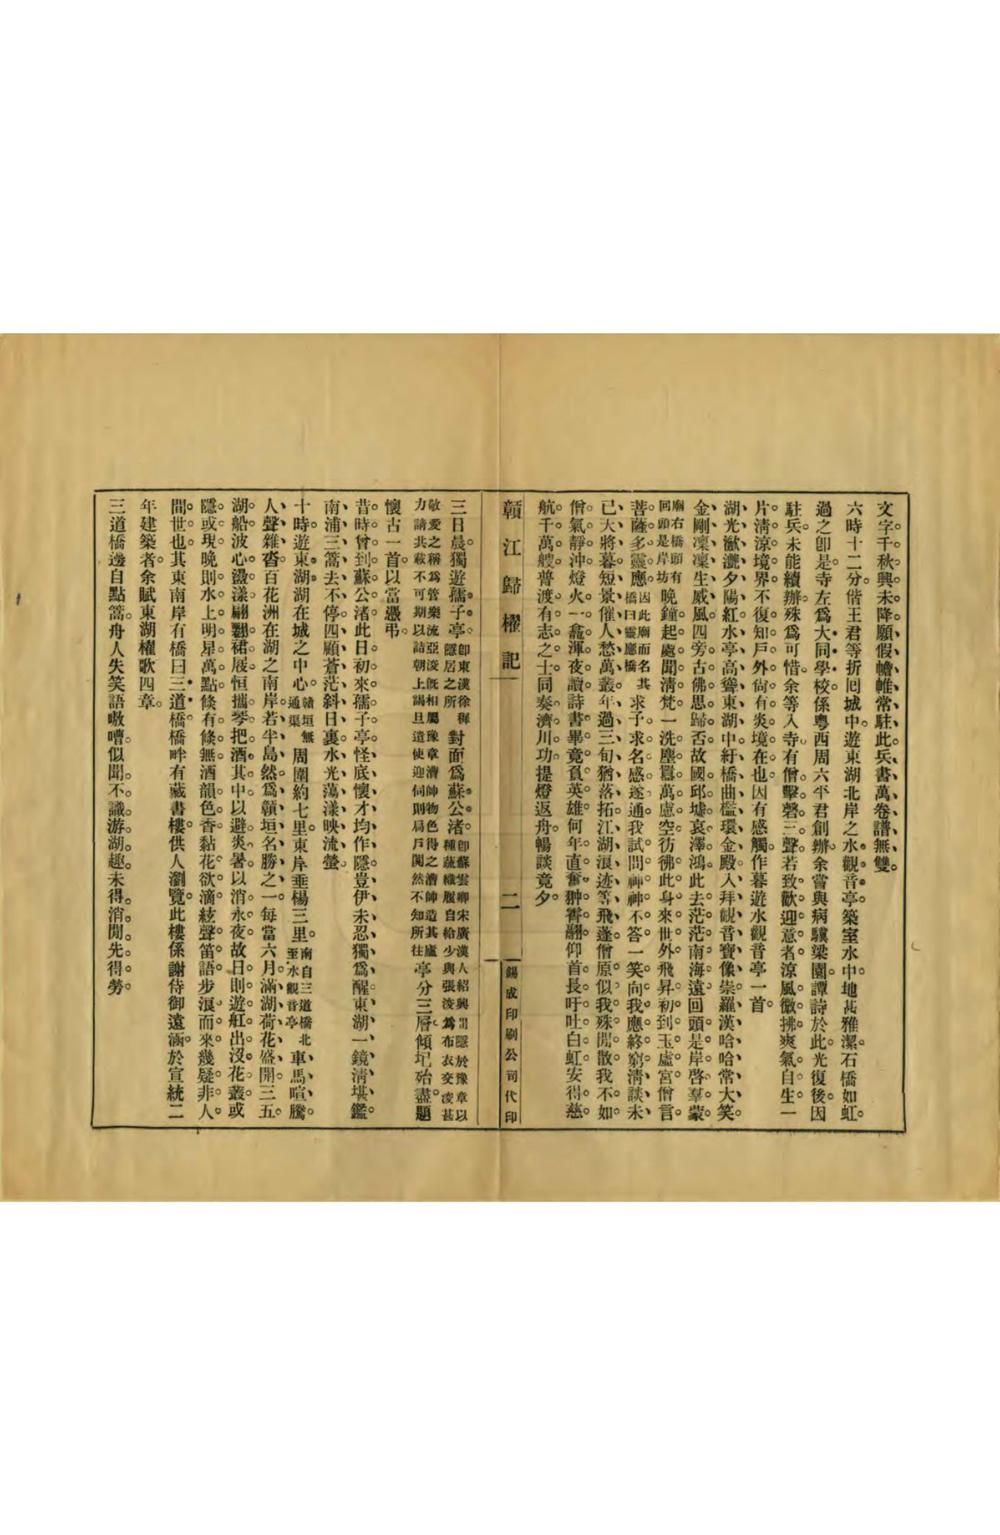 文字。千秋興未降。願假幨帷常駐此。兵書萬卷譜無雙。
六時十二分。偕王君等折囘城中。遊東湖北岸之水觀音亭。築室水中。地甚雅潔。石橋如虹。
過之卽是。寺左爲大同學校。係粵西周六平君創辦。余嘗與病驥梁園譚詩於此。光復後。因
駐兵未能續辦。殊爲可惜。余等入寺。有僧擊磬三聲。若致歡迎意者。涼風微拂。爽氣自生。一
片淸涼境界。不復知戶外尙有炎境在也。因有感觸。作暮遊水觀音亭一首。
湖光瀲灧夕陽紅。水亭高聳東湖中。紆橋曲檻環金殿。入拜觀音寶像崇。羅漢哈哈常大笑。
金剛凜凜生威風。四旁古佛思歸否。故國邱墟哀澤鴻。此去茫茫南海遠。回頭是岸啓羣蒙。
廟右橋頭有回頭是岸坊 晚鐘起處聞淸梵。一洗塵囂萬慮空。彷彿此身來世外。飛昇初到玉虛宮。僧言
菩薩多靈應。因此廟而名其橋曰靈應橋 求子求名感遂通。我試問神神不答。一笑向我應終窮。淸談未
已天將暮。短景催人愁萬叢。年過三旬猶落拓。江湖浪迹等飛蓬。僧原似我殊閒散。我不如
僧氣靜沖。燈火一龕渾夜讀。詩書畢竟負英雄。何年直奮翀霄翮。仰首長吁吐白虹。安得慈
航千萬艘。普渡有志之士同奏濟川功。提燈返舟。暢談竟夕。
贛江歸櫂記 二 錫成印刷公司代印
三日晨。獨遊孺子亭。卽東漢徐穉隱居之所 對面爲蘇公渚。卽蘇雲卿宋廣漢人紹興間隱於豫章以種蔬織履自給少與張浚爲布衣交浚甚
敬愛之稱爲管樂流亞浚旣相屬豫章漕帥物色得之漕帥造其廬力請共載不可期以詰朝上謁旦遣使迎伺則扃戶闃然不知所往 亭分三層。傾圮殆盡。題
懷古一首。以當憑弔。
昔時曾到蘇公渚。此日初來孺子亭。怪底懷才均作隱。豈伊未忍獨爲醒。東湖一鏡淸堪鑑。
南浦三篙去不停。四顧蒼茫斜日裏。水光蕩漾映流螢
十時。遊東湖。湖在城之中心。贛垣無通渠 周圍約七里。東岸垂楊三里。南自三道橋北至水觀音亭 車馬喧騰。
人聲雜沓。百花洲在湖之南岸。若半島然。爲贛垣名勝之一。每當六月。滿湖荷花盛開。三五
湖船。波心瀲漾。翩翻裙屐。恒攜琴把酒其中。以避炎暑。以消永夜。故日則遊舡出沒花叢。或
隱或現。晚則水上明星萬點。倐有倐無。酒韻色香。黏花欲滴。絃聲笛語。步浪而來。幾疑非人
間世也。其東南岸有橋曰三道橋。橋畔有藏書樓。供人瀏覽。此樓係謝侍御遠涵。於宣統二
年建築者。余賦東湖櫂歌四章。
三道橋邊自點篙。舟人失笑語嗷嘈。似聞不識游湖趣。未得消閒先得勞。